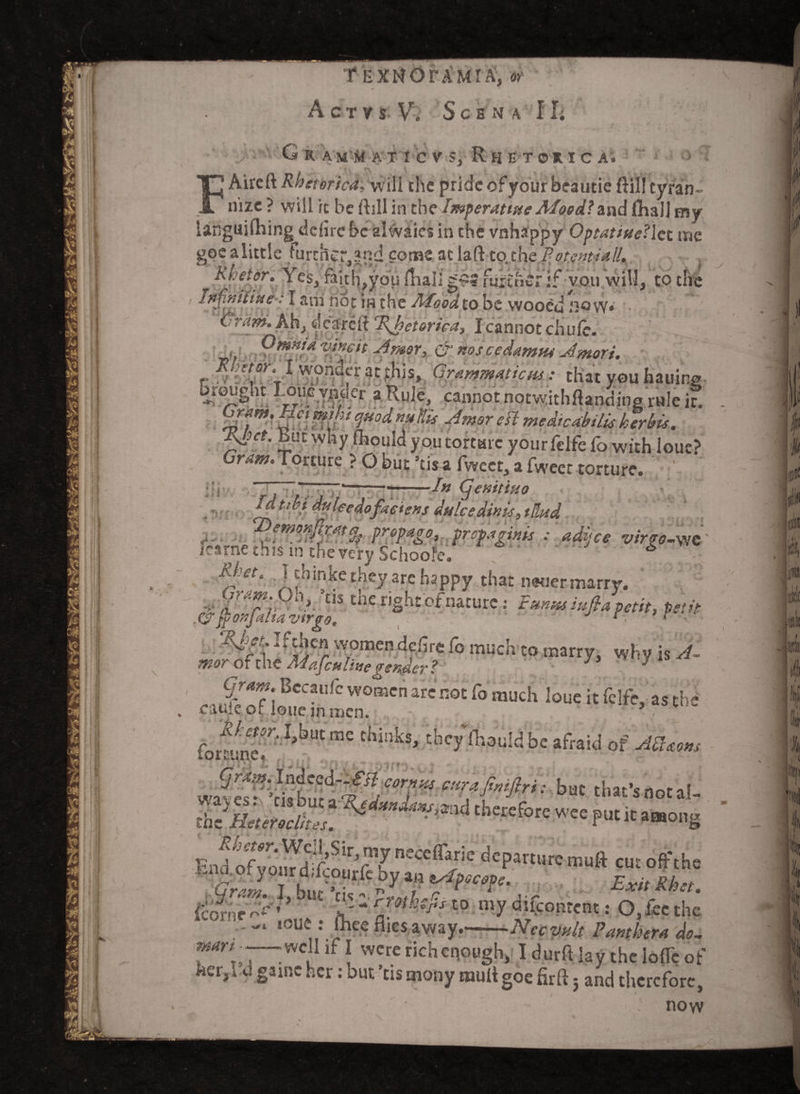 TEXNOΓAMIA, or
ACTVS V. SCENA II.
GRAMMATICVS, RHETORICA.
FAireſt Rhetorica, will the pride of your beautie ſtill tyran-
nize? will it be ſtill in the Imperatiue Mood? and ſhall my
languiſhing deſire be alwaies in the vnhappy Optatiue? let me
goe a little further, and come at laſt to the Potentiall.
Rhetor. Yes, faith, you ſhall goe further if you will, to the
Infinitiue: I am not in the Mood to be wooed now.
Gram. Ah, deareſt Rhetorica, I cannot chuſe.
Omnia vincit Amor, & nos cedamus Amori.
Rhetor. I wonder at this, Grammaticus: that you hauing
brought Loue vnder a Rule, cannot notwithſtanding rule it.
Gram. Hei mihi quod nullis Amor eſt medicabilis herbis.
Rhet. But why ſhould you torture your ſelfe ſo with loue?
Gram. Torture? O but 'tis a ſweet, a ſweet torture.
——In Genitiuo
Id tibi dulcedo faciens dulcedinis, illud
Demonſtrat q, propago, propaginis : adijce virgo-we
learne this in the very Schoole.
Rhet. I thinke they are happy that neuer marry.
Gram. Oh, 'tis the right of nature: Funus iuſta petit, petit
& ſponſalia virgo.
Rhet. If then women deſire ſo much to marry, why is A-
mor of the Maſculine gender?
Gram. Becauſe women are not ſo much loue it ſelfe, as the
cauſe of loue in men.
Rhetor. I, but me thinks, they ſhould be afraid of Actæons
fortune.
Gram. Indeed--Eſt cornus cura ſiniſtri: but that's not al-
wayes: 'tis but a Redundans, and therefore wee put it among
the Heteroclites.
Rhetor. Well, Sir, my neceſſarie departure muſt cut off the
End of your diſcourſe by an Apocope. Exit Rhet.
Gram. I, but 'tis a Protheſis to my diſcontent: O, ſee the
ſcorne of loue: ſhee flies away.——Nec vult Panthera do-
mari——well if I were rich enough, I durſt lay the loſſe of
her, I'd gaine her: but 'tis mony muſt goe firſt; and therefore,
now